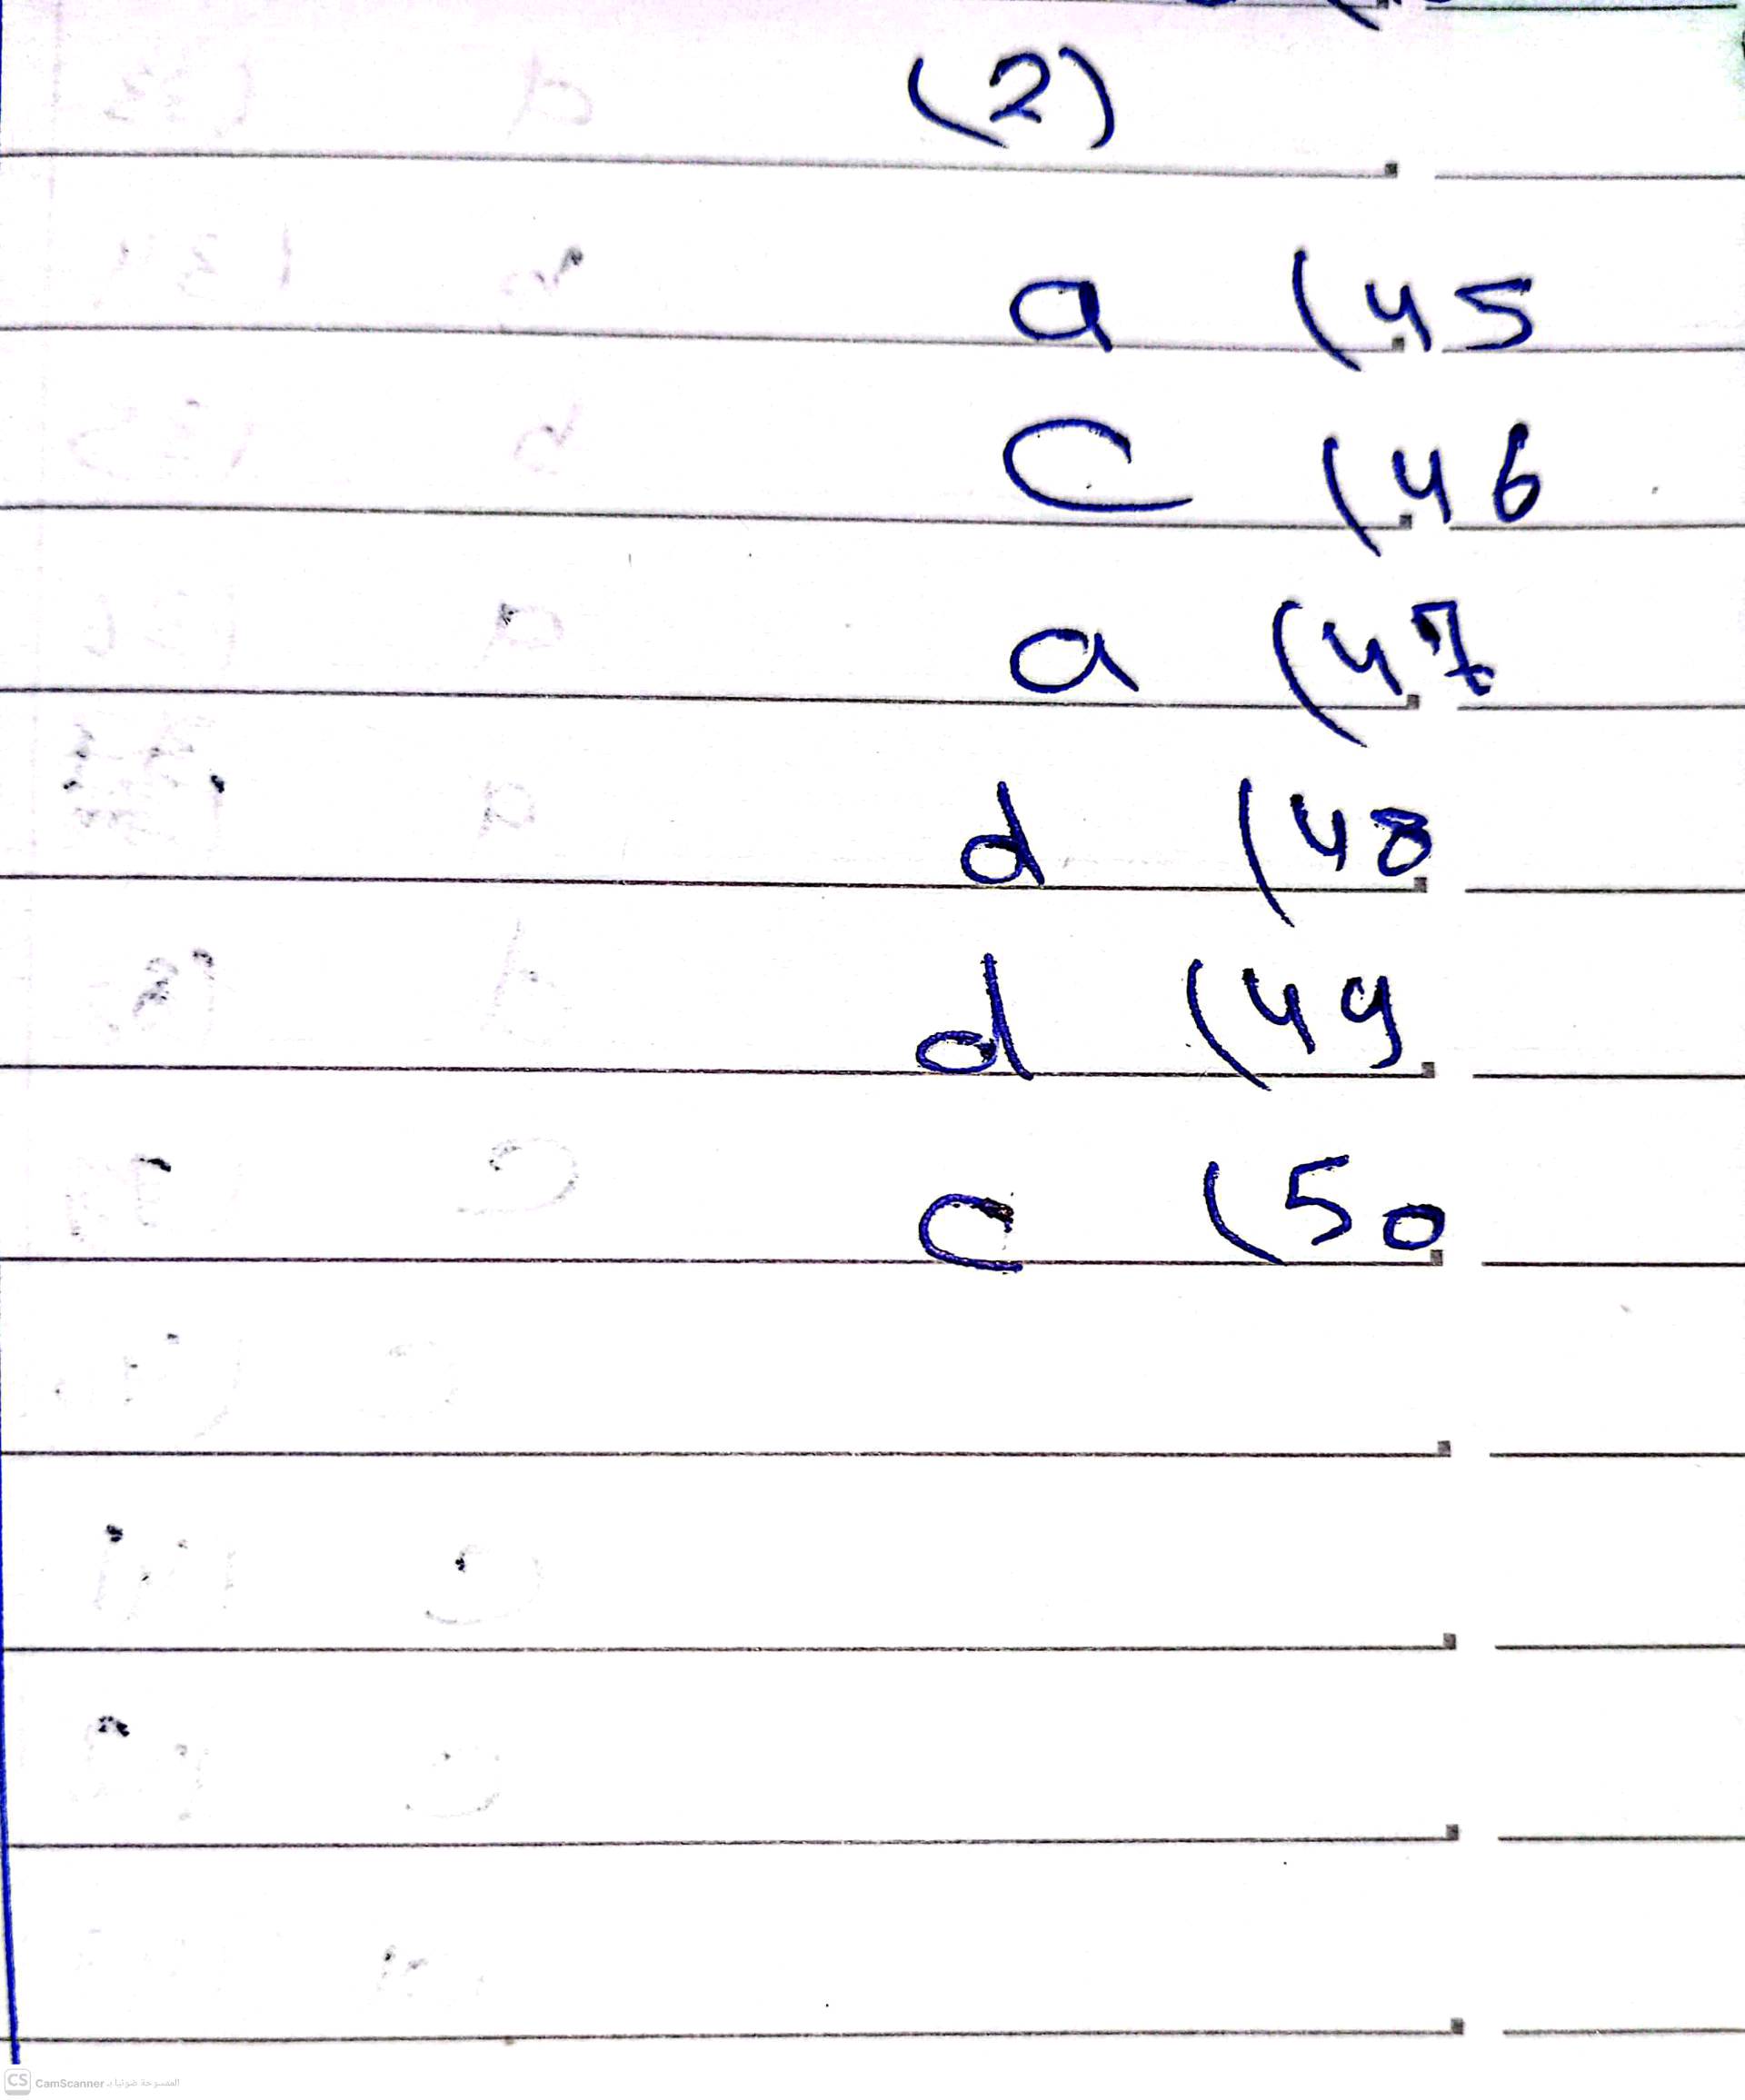 (2)
a (45
c (46
a (47
d (48
d (49
c (50
CS CamScanner الممسوحة ضوئيا بـ